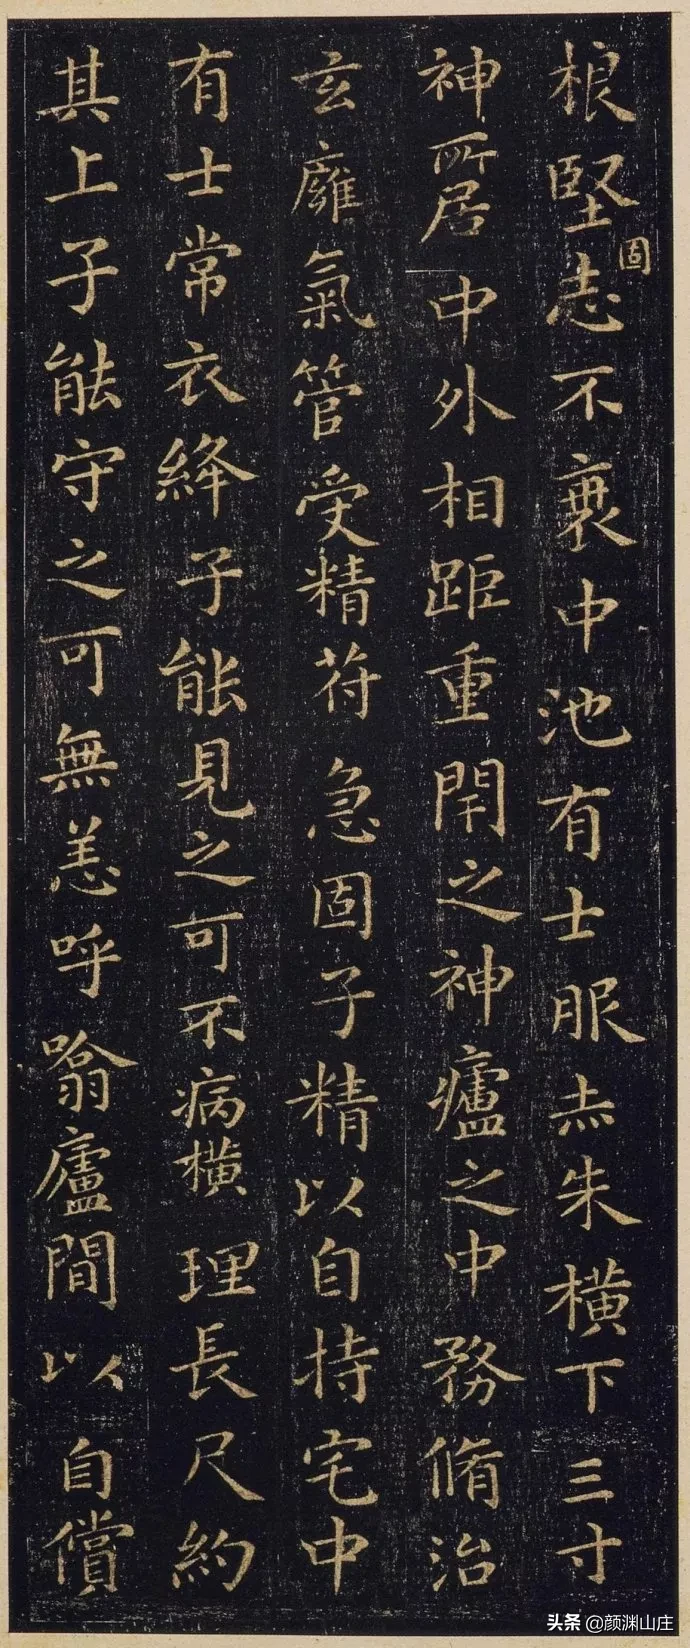 根堅固志不衰中池有士服赤朱橫下三寸
神所居中外相距重閇之神廬之中務脩治
玄廱氣管受精苻急固子精以自持宅中
有士常衣絳子能見之可不病橫理長尺約
其上子能守之可無恙呼噏廬間以自償
头条@颜渊山庄